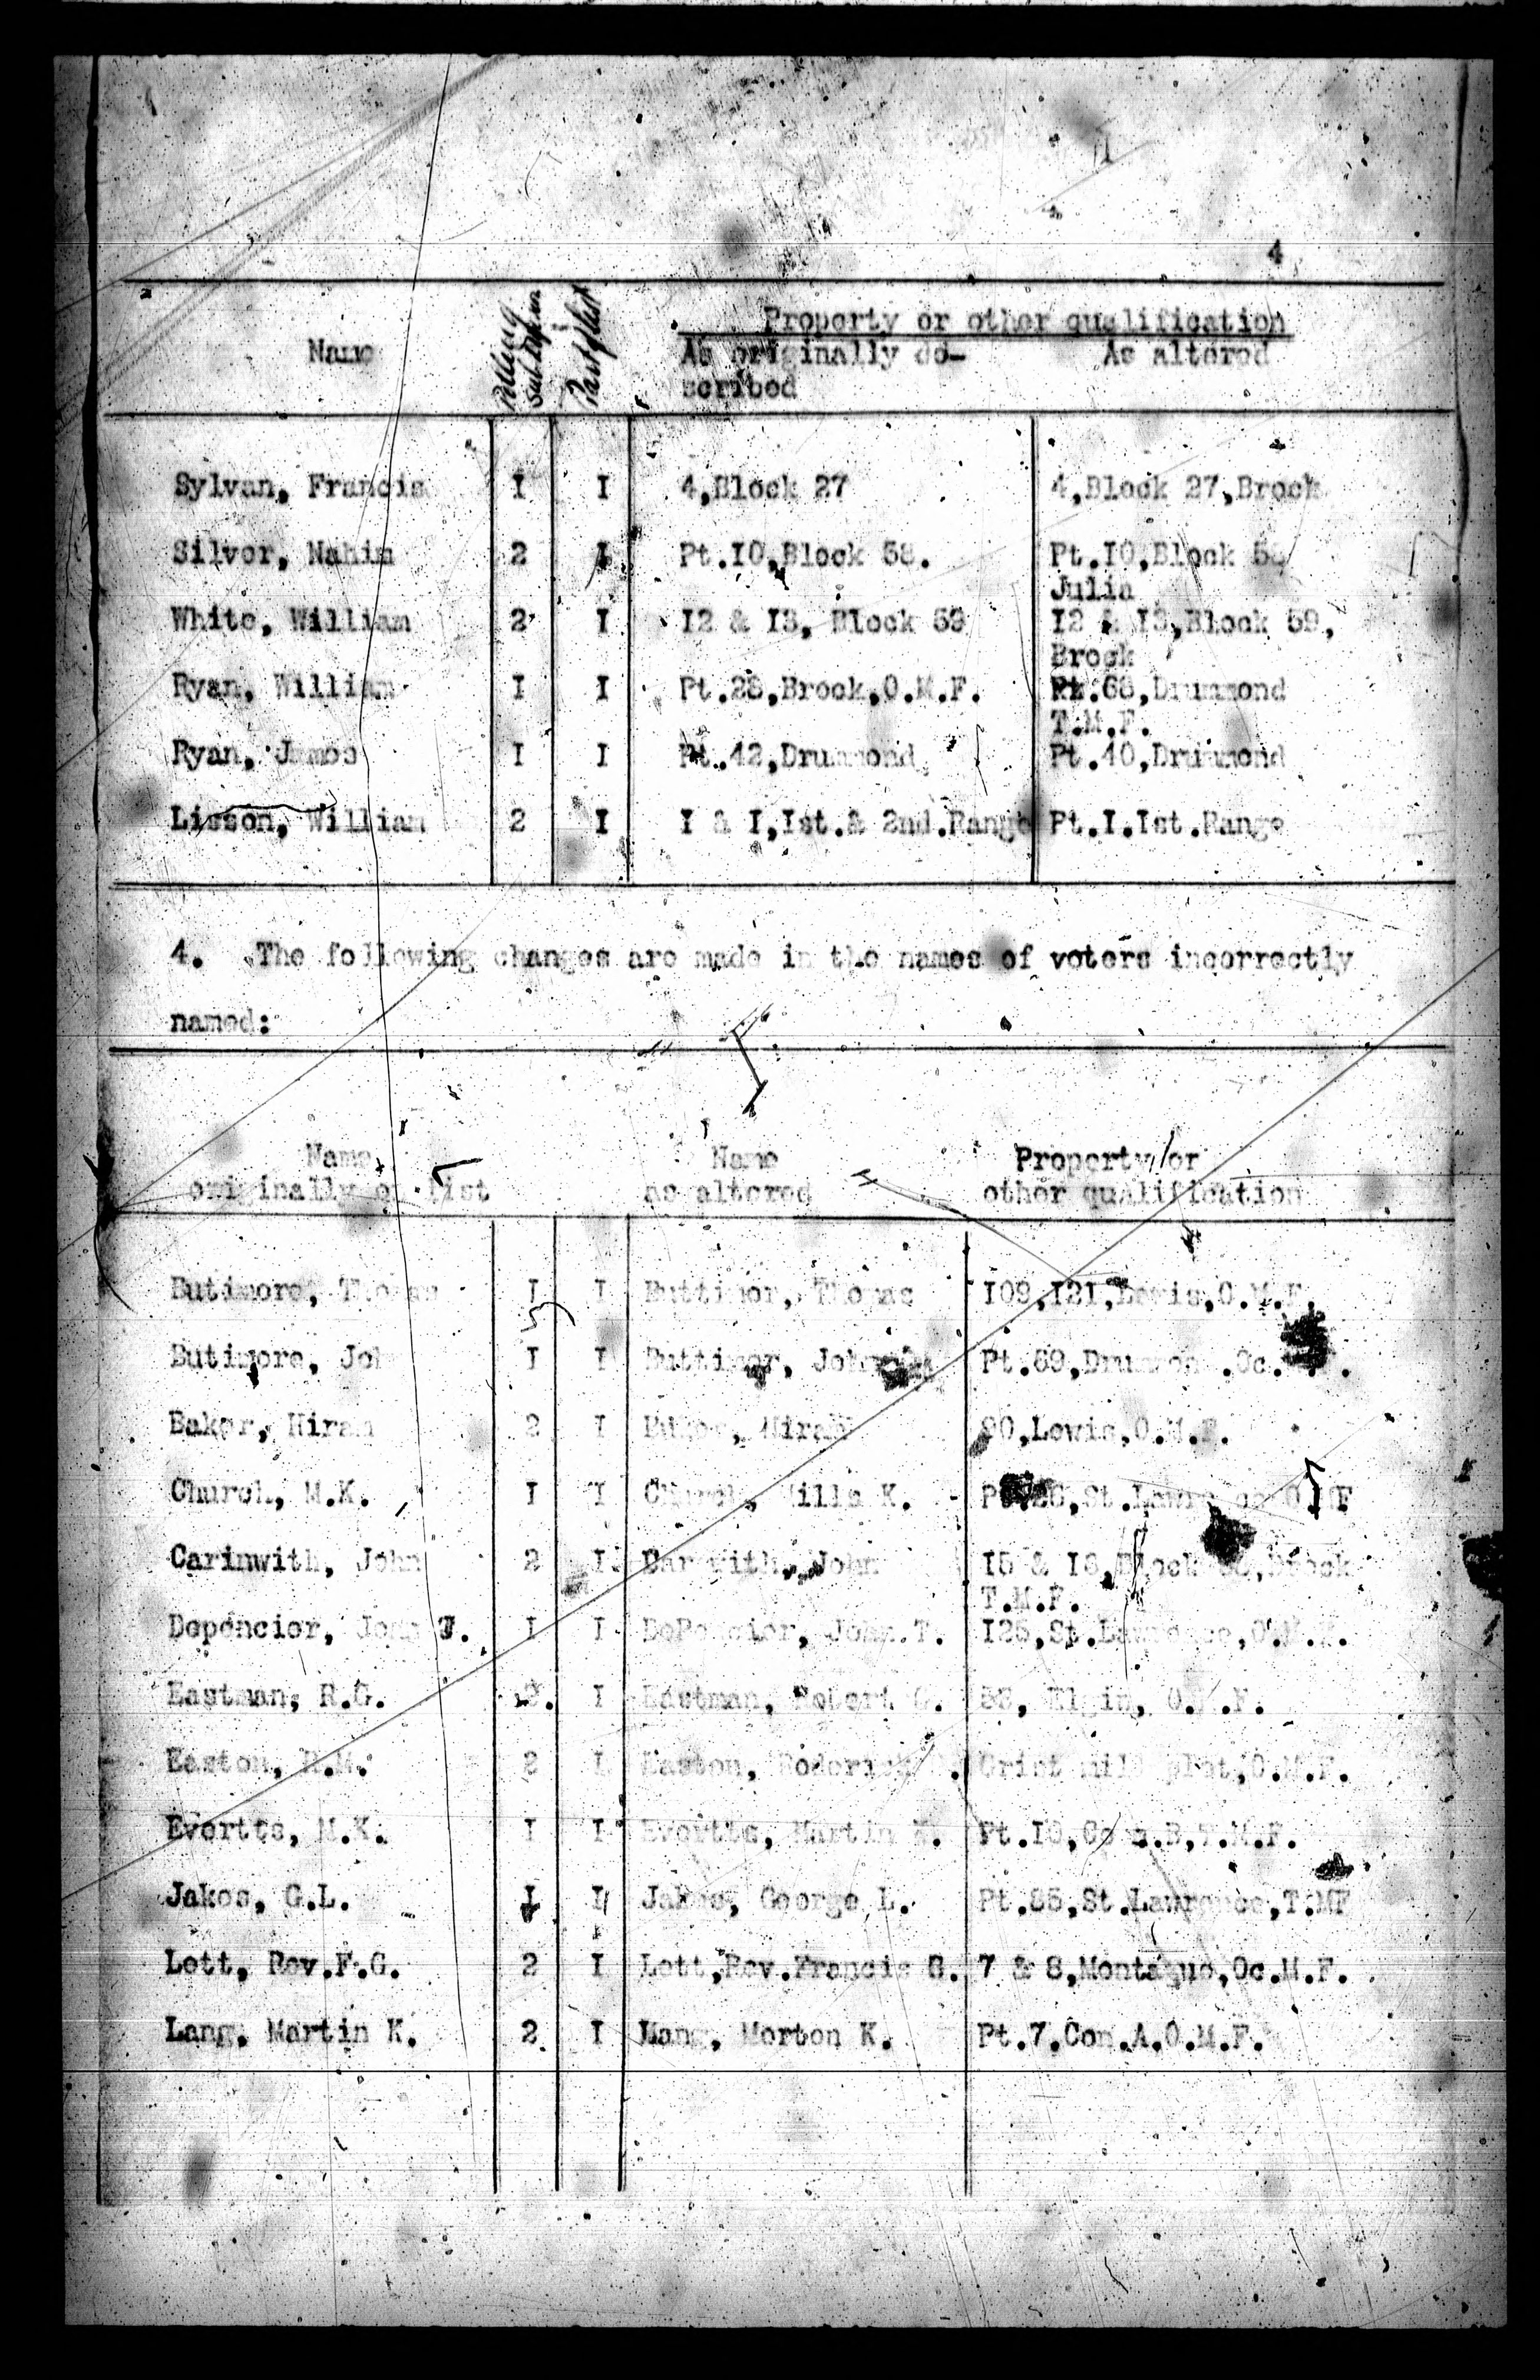 4
Property or other qualification
Name Polling Sub. Part of list As originally de- As altered
scribed
Sylvan, Francis I I 4,Block 27 4,Block 27,Brock
Silver, Nahim 2 I Pt.I0,Block 58. Pt.I0,Block
Julia
White, William 2 I I2 & I3, Block 59 I2 & I3,Block 59,
Brock
Ryan, William I I Pt.28,Brock,O.M.F. Pt.68,Drummond
T.M.F.
Ryan, James I I Pt.42,Drummond Pt.40,Drummond
Lisson, William 2 I I & I,Ist.& 2nd.Range Pt.I.Ist.Range
4. The following changes are made in the names of voters incorrectly
named:
Name Name Property or
originally on list as altered other qualification
Butimore, Thomas I I Buttimor, Thomas I09,I21,Lewis,O.M.F.
Butimore, I I Buttimor, Pt.69,
Baker, Hiram 2 I 90,Lewis,O.M.F.
Church, M.K. I I Church, Mills K. St.Lawrence
Carinwith, John 2 I John I5 & I6,Block Brock
T.M.F.
Depencier, John I I DePencier, John T. St.Lawrence,
Eastman, R.G. I Eastman, Robert G. Elgin, O.M.F.
Easton, R.M. 2 I Easton, Roderick Grist mill plot,O.M.F.
Evertts, M.K. I I Evertts, Martin K. Pt.I8,Con.B,T.M.F.
Jakes, G.L. I I Jakes, George L. Pt.85,St.Lawrence,T.MF
Lett, Rev.F.G. 2 I Lett,Rev.Francis G. 7 & 8,Montague,Oc.M.F.
Lang, Martin K. 2 I Morton K. Pt.7,Con.A.O.M.F.